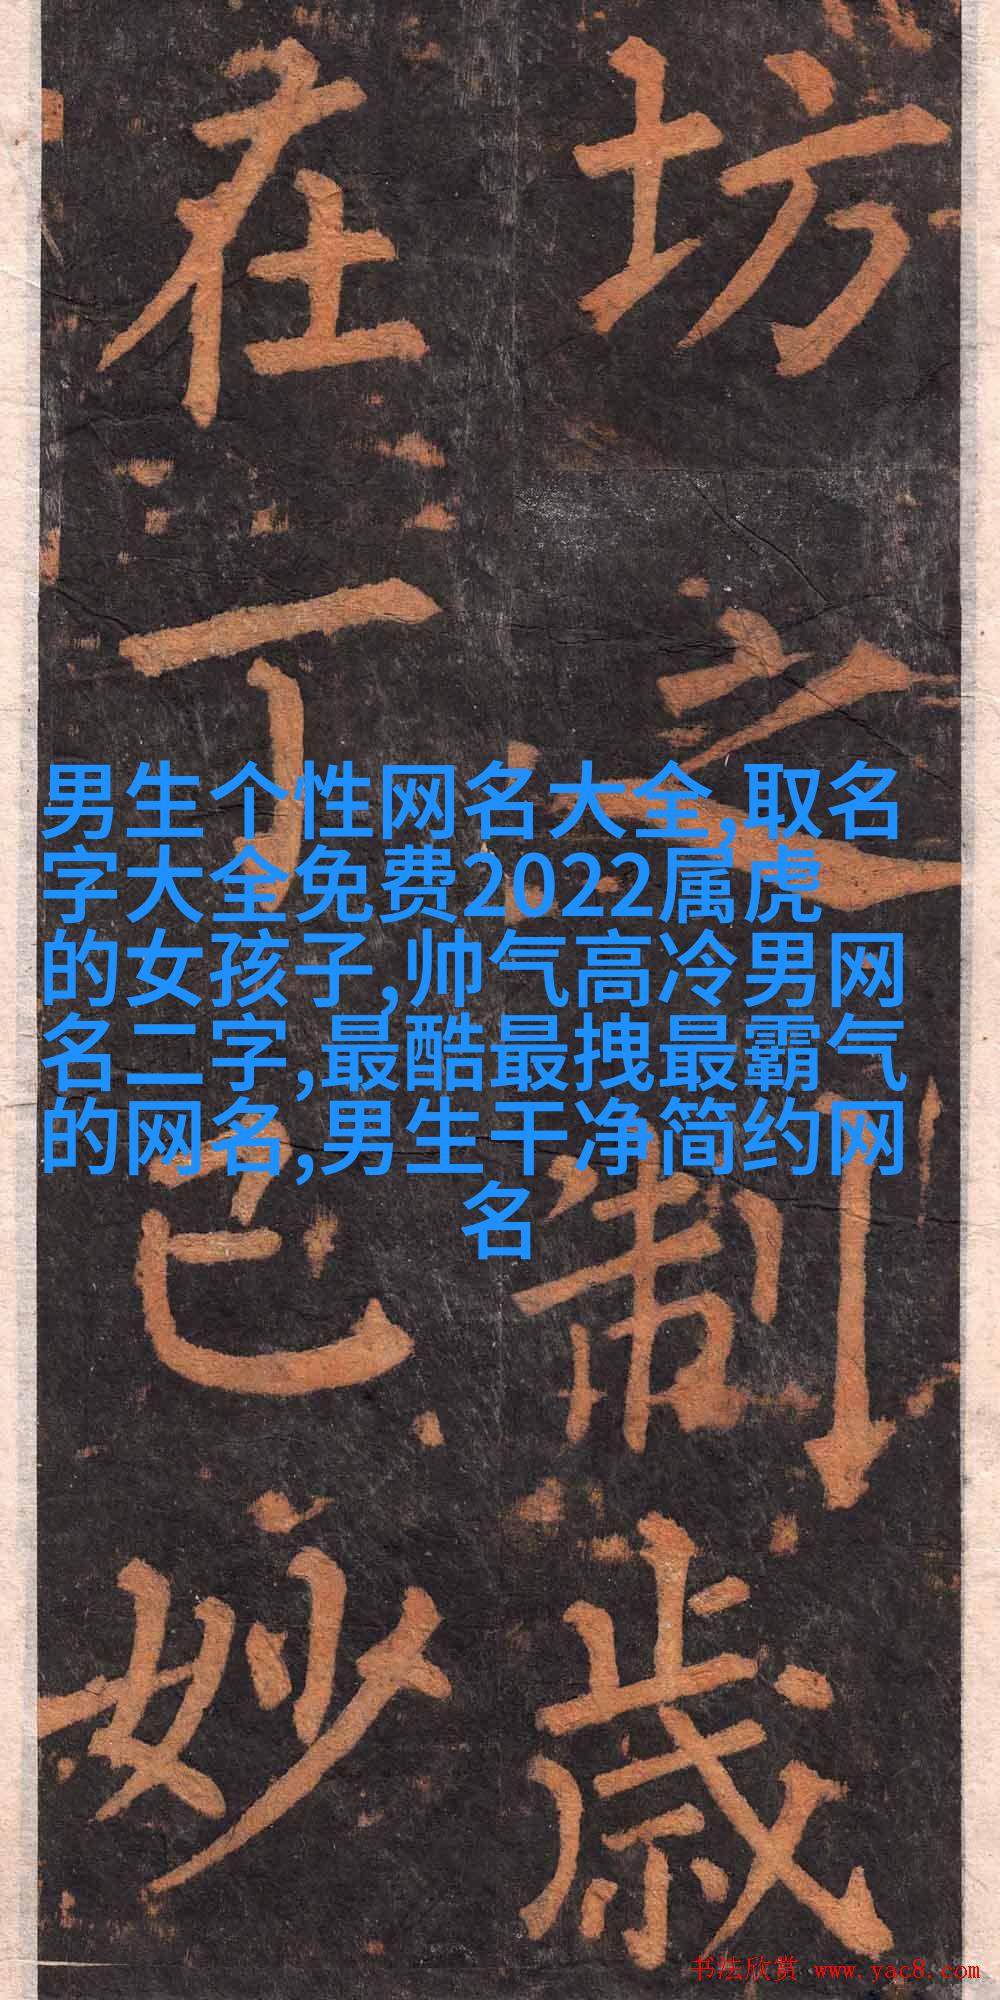 坊之制歲
在丁巳妙
男生个性网名大全,取名
字大全免费2022属虎
的女孩子,帅气高冷男网
名二字,最酷最拽最霸气
的网名,男生干净简约网
名
书法欣赏 www.yac8.com